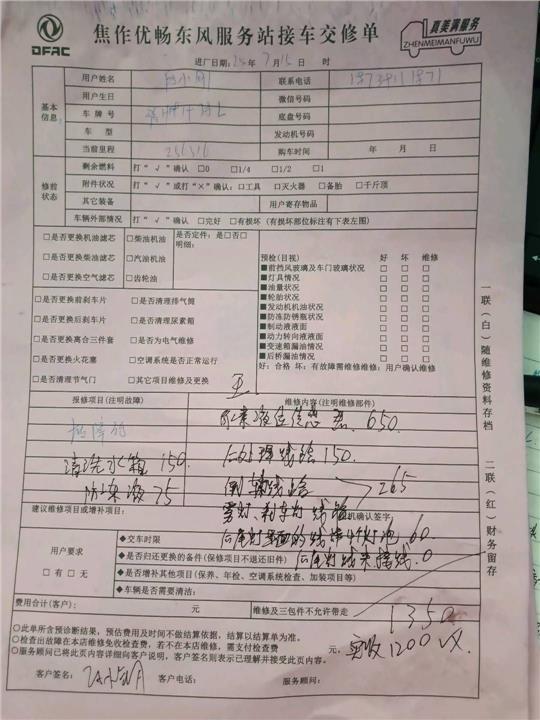 DFAC
焦作优畅东风服务站接车交修单
真美满服务
ZHENMEIMANFUWU
进厂日期:24年7月15日 时
基本信息:
用户姓名
联系电话
用户生日
微信号码
车牌号
底盘号码
车型
发动机号码
当前里程 256316
购车时间 年 月 日
修前状态
剩余燃料 打“√”确认 □0 □1/4 □1/2 □1
附件状况 打“√”或打“×”确认:□工具 □灭火器 □备胎 □千斤顶
其它装备
用户寄存物品
车辆外部情况 打“√”确认 □完好 □有损坏(有损坏部位标注有下表左图)
□是否更换机油滤芯 □柴油机油 是否定件:是□否□
明细:
□是否更换柴油滤芯 □汽油机油
□是否更换空气滤芯 □齿轮油
□是否更换前刹车片 □是否清理排气筒
□是否更换后刹车片 □是否清理尿素箱
□是否更换离合三件套 □是否为电气维修
□是否更换火花塞 □空调系统是否正常运行
□是否清理节气门 □其它项目维修及更换
预检(目视) 好 坏 维修
■前挡风玻璃及车门玻璃状况 □ □ □
■灯具情况 □ □ □
■油量状况 □ □ □
■轮胎状况 □ □ □
■发动机机油状况 □ □ □
■防冻防锈瓶状况 □ □ □
■制动液液面 □ □ □
■动力转向液液面 □ □ □
■变速箱漏油情况 □ □ □
■后桥漏油情况 □ □ □
好:合格 坏:有故障需维修维修:用户确认维修
报修项目(注明故障)
维修内容(注明维修部件)
尿素液位传感器 650
清洗水箱 150
后处理线路 150
防冻液 75
倒车线路 265
雾灯、刹车灯线路
建议维修项目或增补项目:
机确认签字)
用户要求
□有 □无
◆交车时限
后尾灯里面的线接4个灯泡 60
◆是否归还更换的备件(保修项目不退还旧件)
后尾灯线束接线 0
◆是否增补其他项目(保养、年检、空调系统检查、加装项目等)
◆车辆是否需要清洁:
费用合计(客户): 元
维修及三包件不允许带走
1350
◎此单所含预诊断结果,预估费用及时间不做结算依据,结算以结算单为准。
◎检查出故障在本店维修免收检查费,若不在本店维修,需支付检查费 元,
实收1200 VX.
◎服务顾问已将此页内容详细向客户说明,客户签名则表示已理解并接受此页内容。
客户签名:
客户电话:
服务顾问:
一联(白)随维修资料存档
二联(红)财务留存